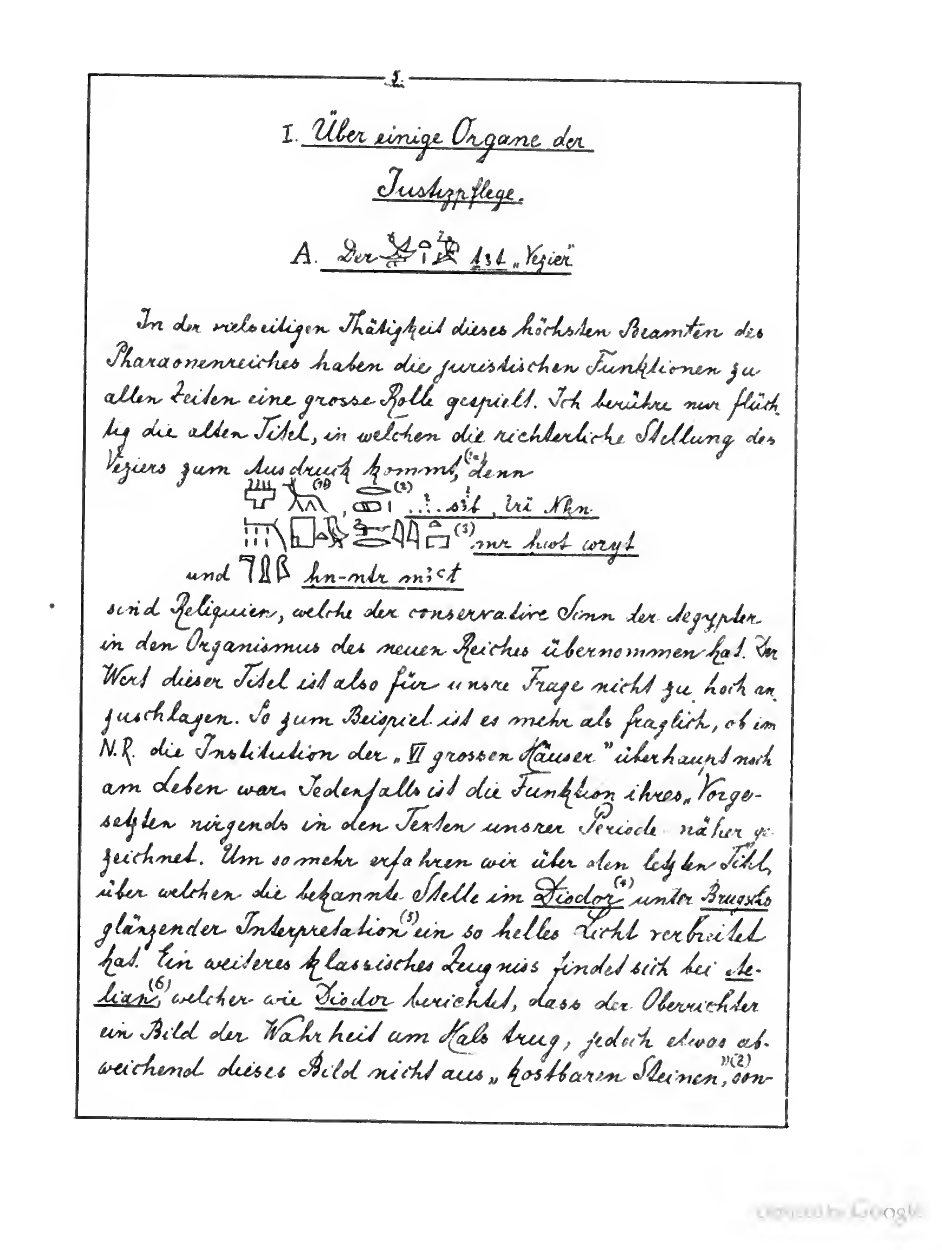 5.
I. Über einige Organe der
Justizpflege.
A. Der t3t „Vezier"
In der vielseitigen Thätigkeit dieses höchsten Beamten des
Pharaonenreiches haben die juristischen Funktionen zu
allen Zeiten eine grosse Rolle gespielt. Ich berühre nur flüch-
tig die alten Titel, in welchen die richterliche Stellung des
Veziers zum Ausdruck kommt,(1a) denn
(1b), (2) ..?. s3b, iri Nhn
(3) mr hwt wryt
und hn-ntr m3ct
sind Reliquien, welche der conservative Sinn der Aegypter
in den Organismus des neuen Reiches übernommen hat. Der
Wert dieser Titel ist also für unsre Frage nicht zu hoch an
zuschlagen. So zum Beispiel ist es mehr als fraglich, ob im
N.R. die Institution der „VI grossen Häuser" überhaupt noch
am Leben war. Jedenfalls ist die Funktion ihres „Vorge-
setzten" nirgends in den Texten unsrer Periode näher ge-
zeichnet. Um somehr erfahren wir über den letzten Titel,
über welchen die bekannte Stelle im Diodor(4) unter Brugschs
glänzender Interpretation(5) ein so helles Licht verbreitet
hat. Ein weiteres klassisches Zeugniss findet sich bei Ae-
lian,(6) welcher wie Diodor berichtet, dass der Oberrichter
ein Bild der Wahrheit um Hals trug, jedoch etwas ab-
weichend dieses Bild nicht aus „kostbaren Steinen,"(7) son-
Digitized by Google